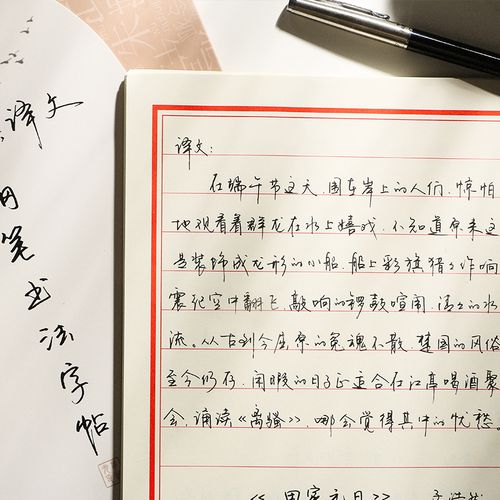 译文
钢笔书法字帖
译文:
在端午节这天,围在岸上的人们,惊怕
地观看着群龙在水上嬉戏,不知道原来这
是装饰成龙形的小船,船上彩旗猎猎作响
震纪空中翻飞,敲响的锣鼓喧闹,清清的水
流。从古到今屈原的冤魂不散,楚国的风俗
至今仍存,闲暇的日子正适合在江亭喝酒聚
会,诵读《离骚》,哪会觉得其中的忧愁。
《田家元日》 孟浩然